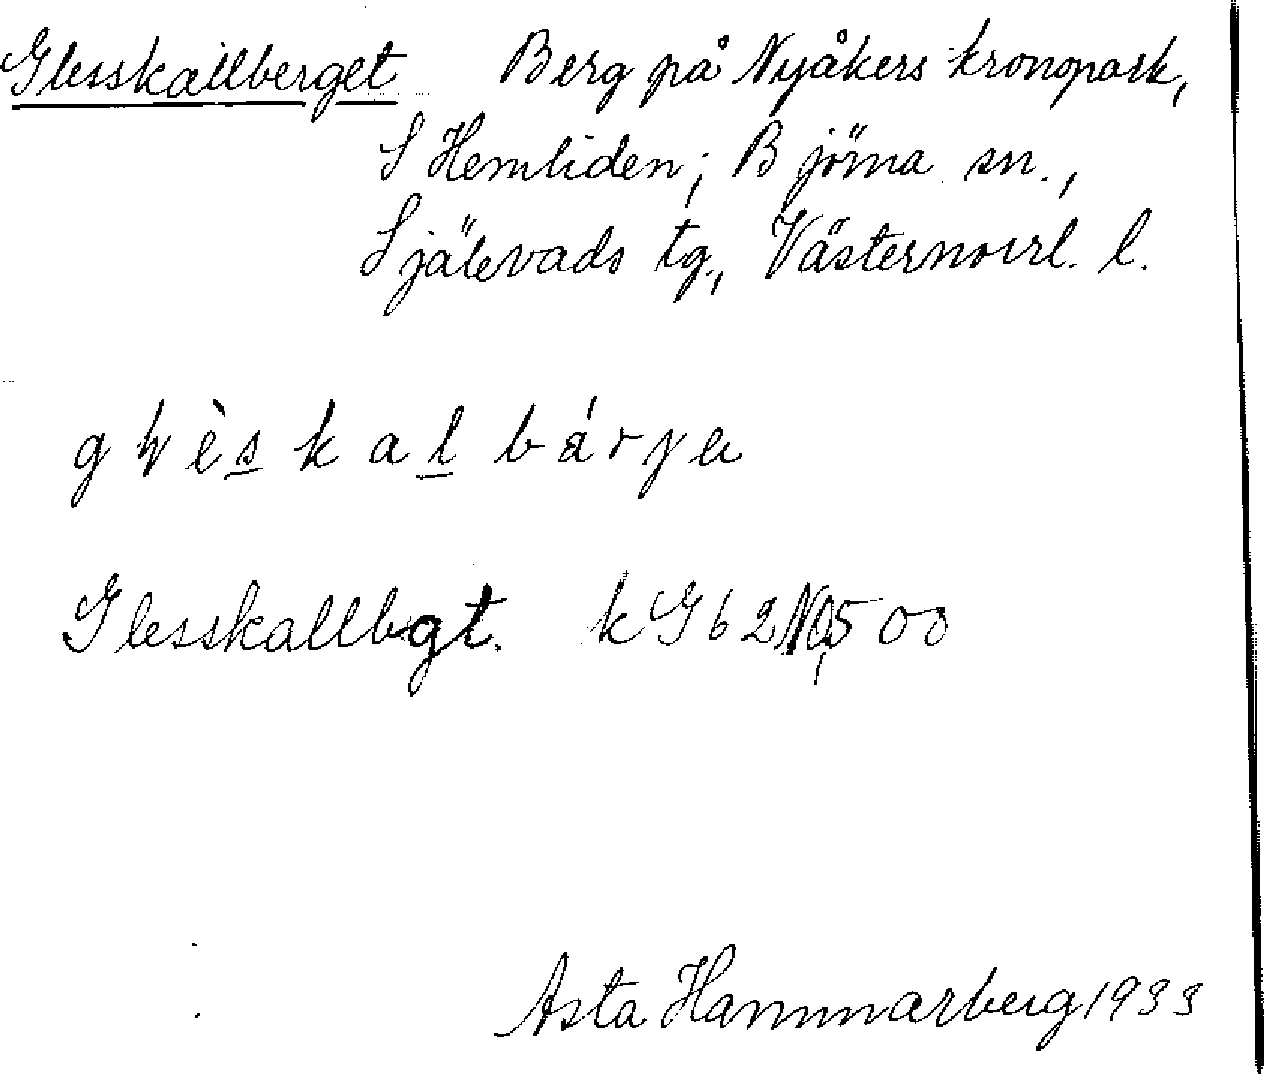 Glesskallberget Berg på Nyåkers kronopark,
S Hemliden; Björna sn.,
Själevads tg., Västernorrl. l.
Glesskallbgt. k G 62 NO, 500
Asta Hammarberg 1933